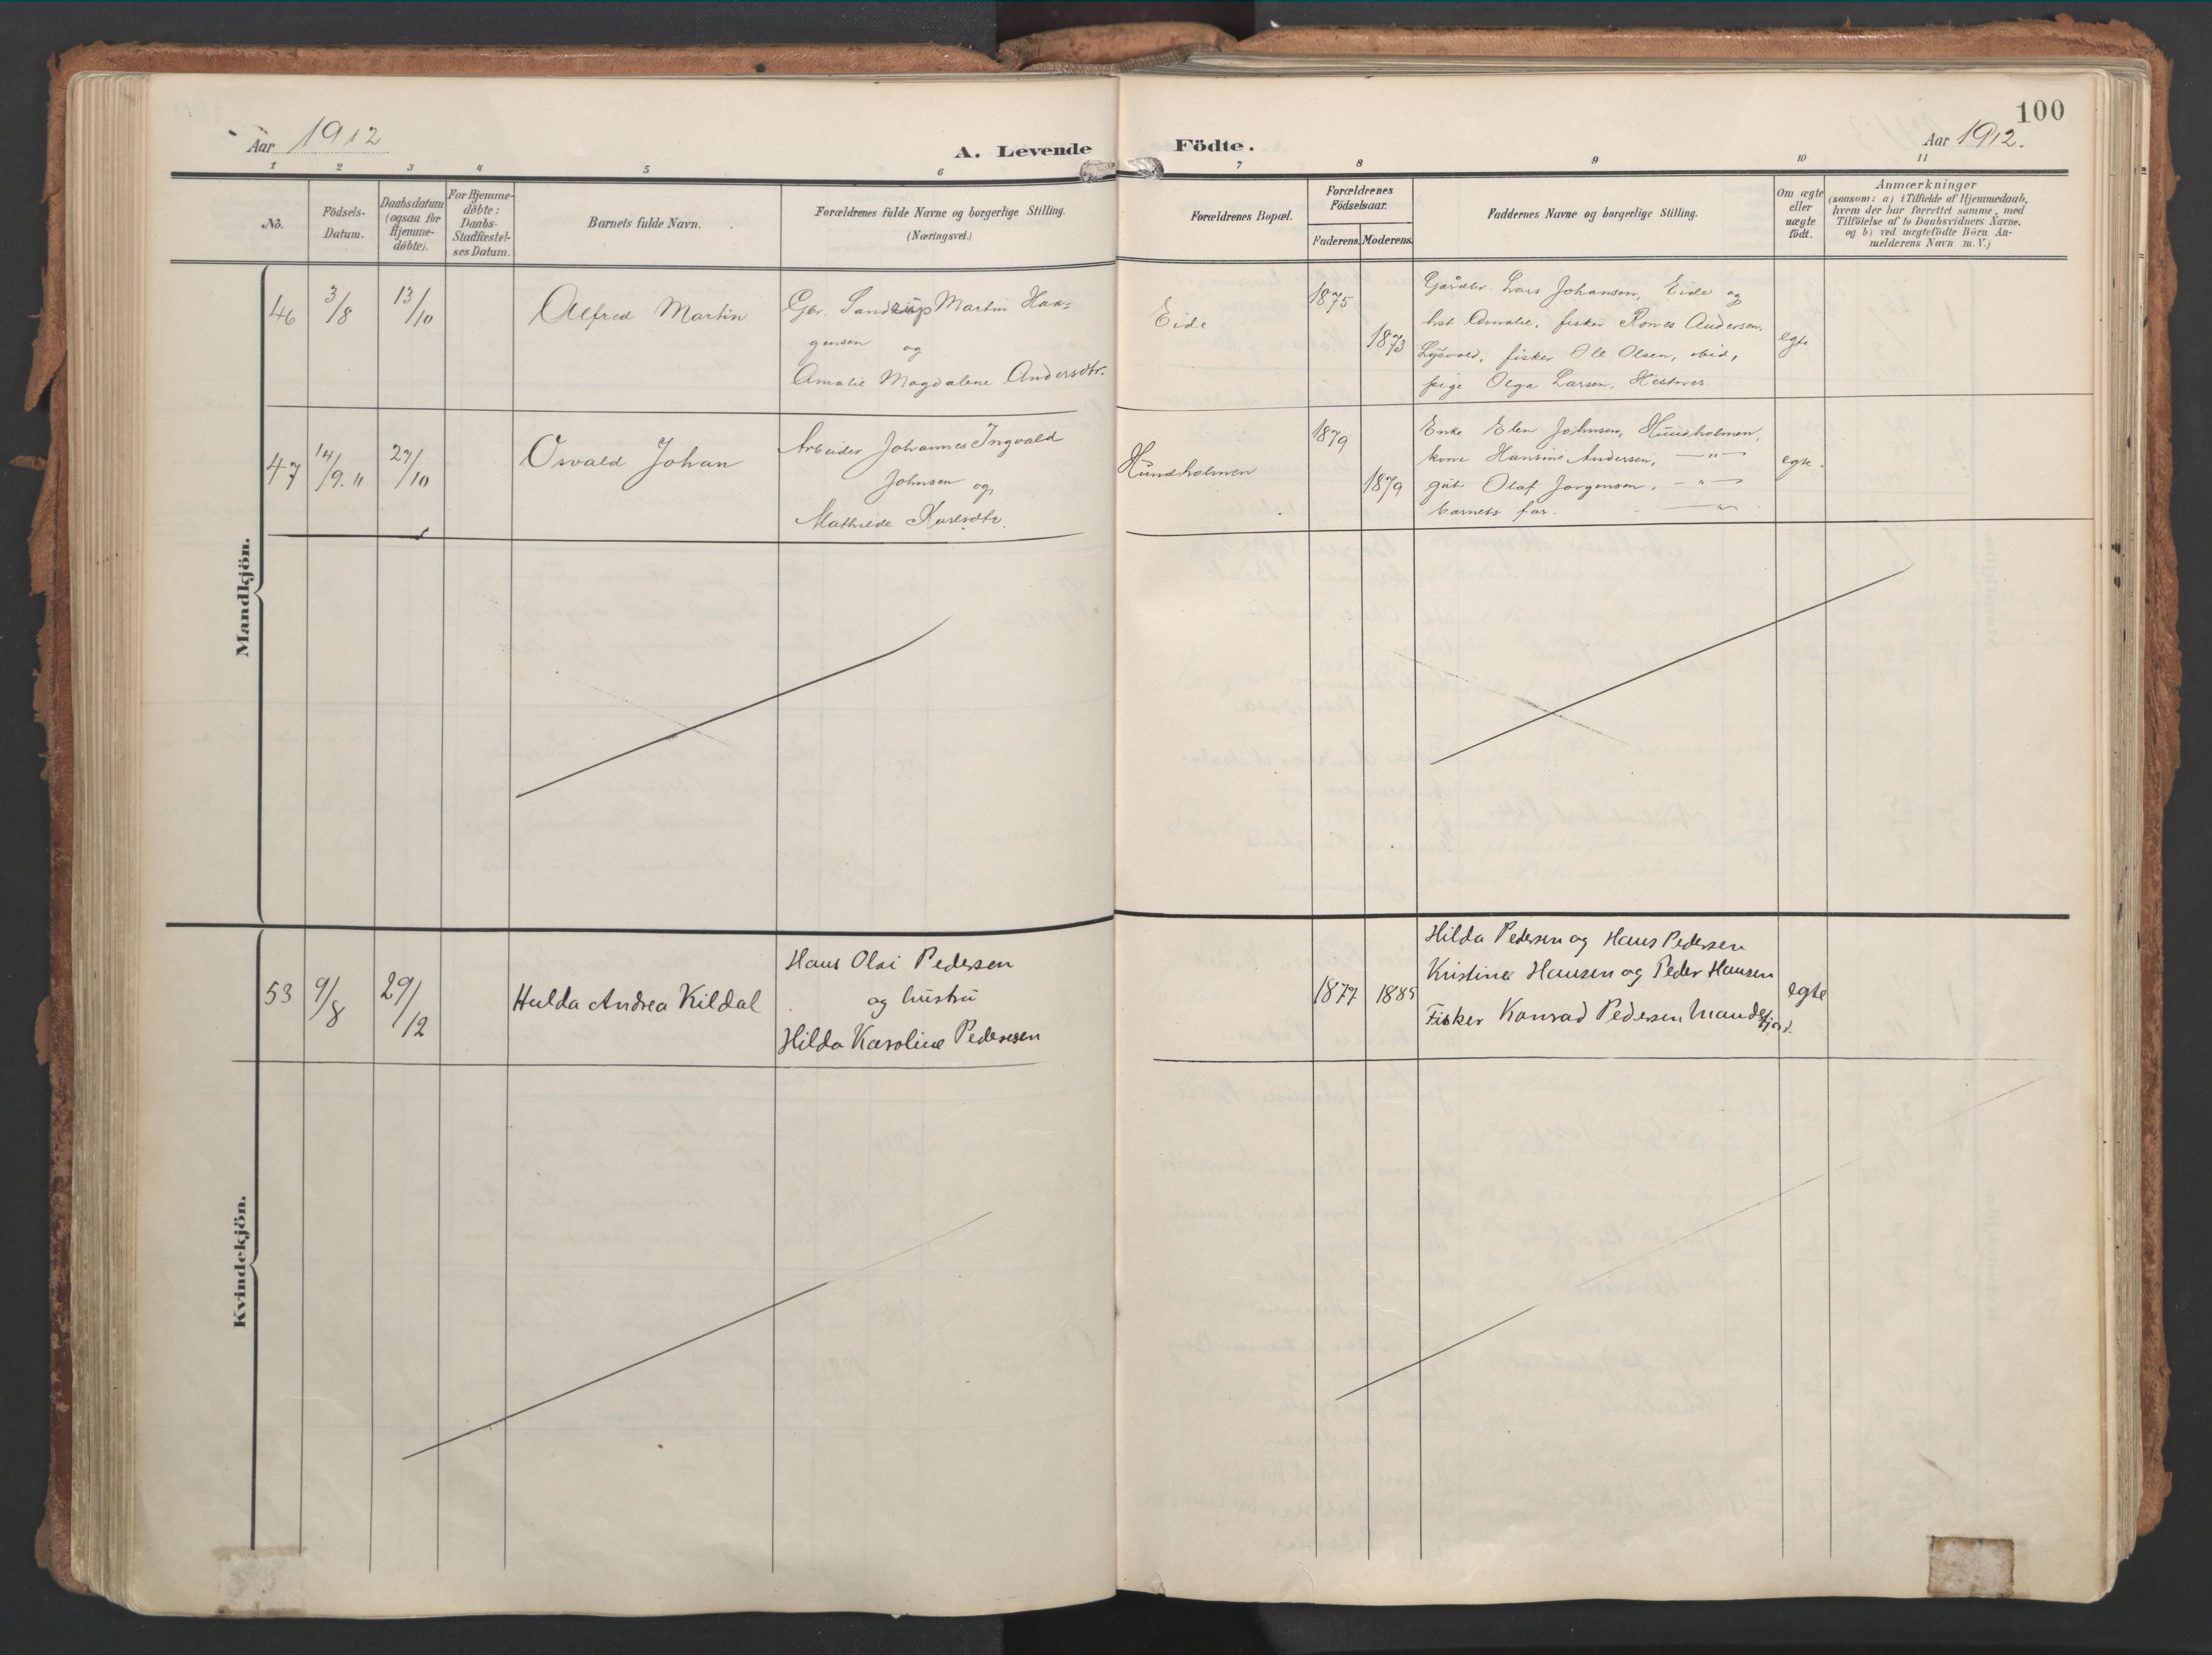 100
Aar 1912
A. Levende Födte.
Aar 1912.
1 2 3 4 5 6 7 8 9 10 11
No.
Födsels-
Datum.
Daabsdatum
(ogsaa for
Hjemme-
döbte).
For Hjemme-
döbte:
Daabs-
Stadfæstel-
ses Datum.
Barnets fulde Navn.
Forældrenes fulde Navne og borgerlige Stilling.
(Næringsvei.)
Forældrenes Bopæl.
Forældrenes
Födselsaar.
Faderens. Moderens.
Faddernes Navne og borgerlige Stilling.
Om ægte
eller
uægte
födt.
Anmærkninger
(saasom: a) i Tilfælde af Hjemmedaab,
hvem der har forrettet samme, med
Tilföielse af to Daabsvidners Navne,
og b) ved uægtefödte Börn An-
melderens Navn m. V.)
Mandkjön.
46 3/8 13/10 Alfred Martin
Gbr. Sandrup Martin Haa-
gensen og
Amalie Magdalene Andersdtr.
Eide
1875
1873
Gårdbr. Lars Johansen, Eide og
hst Amalie, fisker Andersen,
Lysvold, fisker Ole Olsen, ibid,
pige Olga Larsen, Hestnes
egte
47 14/9. " 27/10 Osvald Johan
Arbeider Johannes Ingvald
Johnsen og
Mathilde Karlsdtr.
Hundholmen
1879
1879
Enke Elen Johnsen, Hundholmen,
kone Hansine Andersen, — " —
gut Olaf Jorgensen, — " —
barnets far. — " —
egte.
Kvindekjön.
53 9/8 29/12 Hulda Andrea Kildal
Hans Olai Pedersen
og hustru
Hilda Karoline Pedersen
1877 1885
Hilda Pedersen og Hans Pedersen
Kristine Hansen og Peder Hansen
Fisker Konrad Pedersen
egte